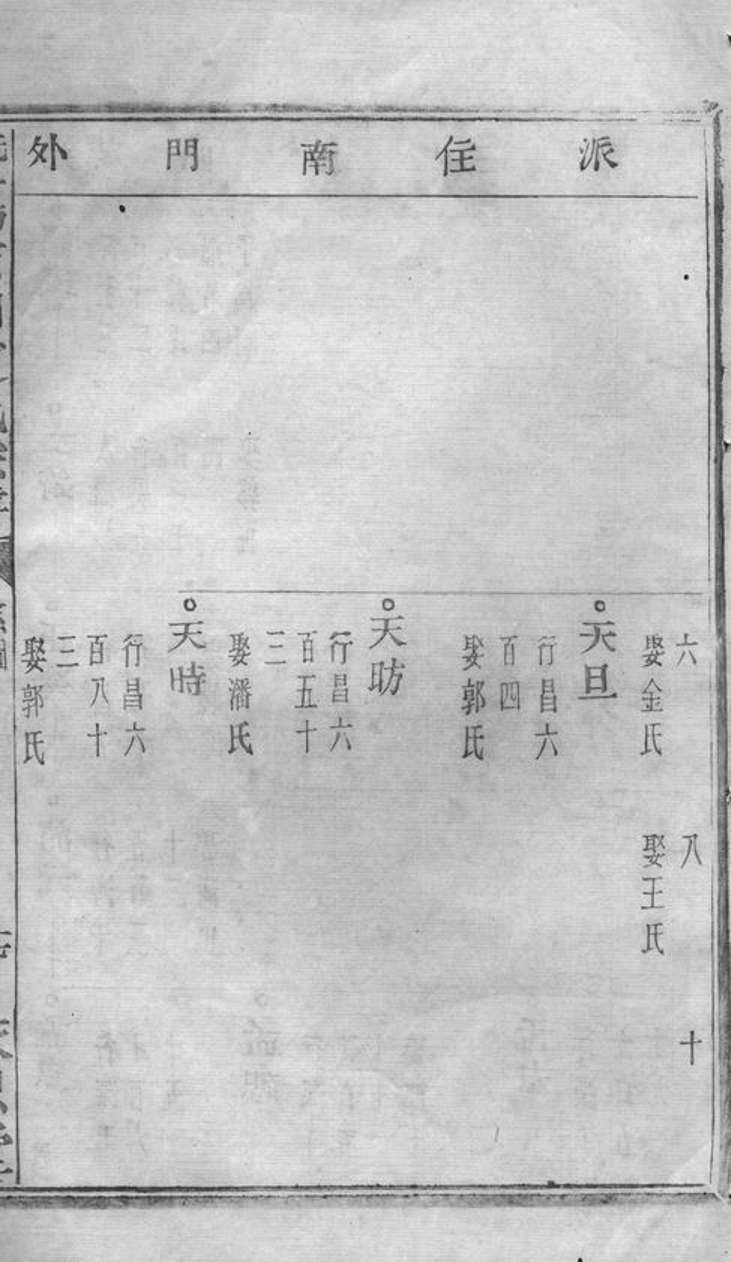 派住南門外
六
娶金氏
八
娶王氏
十
天旦
行昌六
百四
娶郭氏
天昉
行昌六
百五十
三
娶潘氏
天時
行昌六
百八十
三
娶郭氏